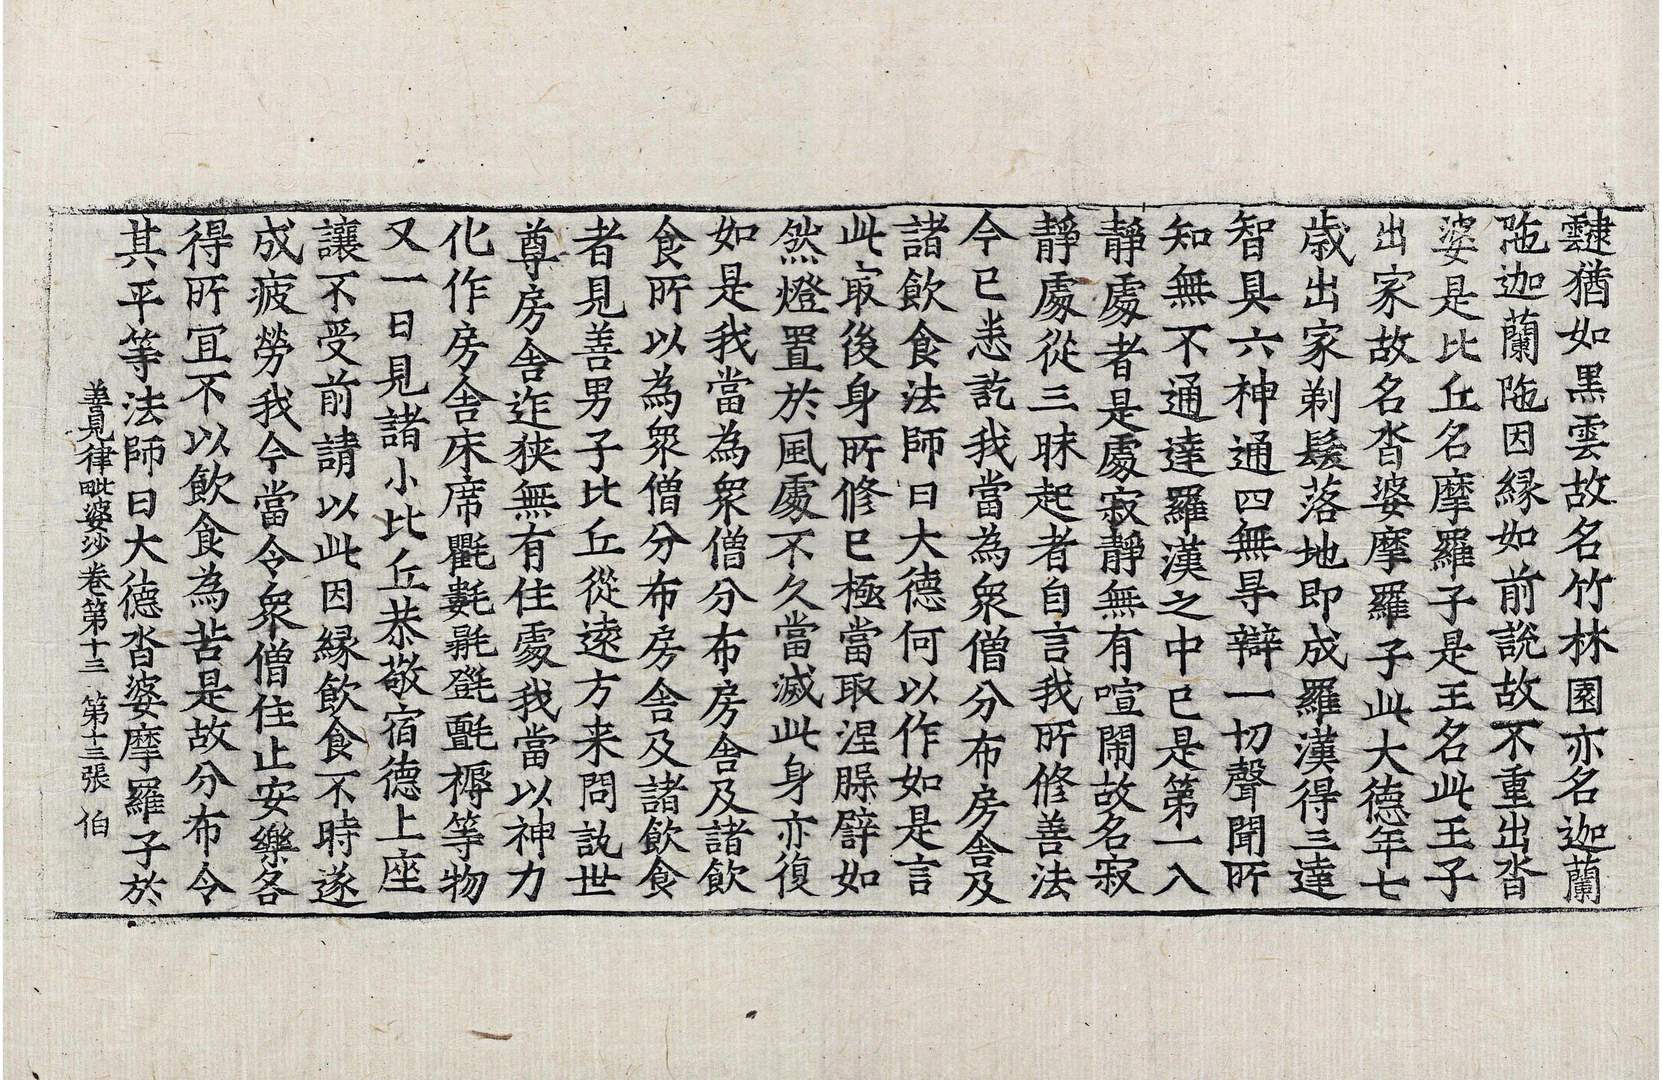 靆猶如黑雲故名竹林園亦名迦蘭
陁迦蘭陁因縁如前說故不重出沓
婆是比丘名摩羅子是王名此王子
出家故名沓婆摩羅子此大德年七
歲出家剃髮落地即成羅漢得三達
智具六神通四無㝵辯一切聲聞所
知無不通達羅漢之中已是第一入
靜處者是處寂靜無有喧鬧故名寂
靜處從三昧起者自言我所修善法
今已悉訖我當為衆僧分布房舍及
諸飲食法師曰大德何以作如是言
此冣後身所修已極當取涅槃譬如
然燈置於風處不久當滅此身亦復
如是我當為衆僧分布房舍及諸飲
食所以為衆僧分布房舍及諸飲食
者見善男子比丘從逺方来問訊世
尊房舍迮狹無有住處我當以神力
化作房舍床席氍氀毾㲪氈褥等物
又一日見諸小比丘恭敬宿德上座
讓不受前請以此因縁飲食不時遂
成疲勞我今當令衆僧住止安樂各
得所冝不以飲食為苦是故分布令
其平等法師曰大德沓婆摩羅子於
善見律毗婆沙卷第十三　第十三張　伯